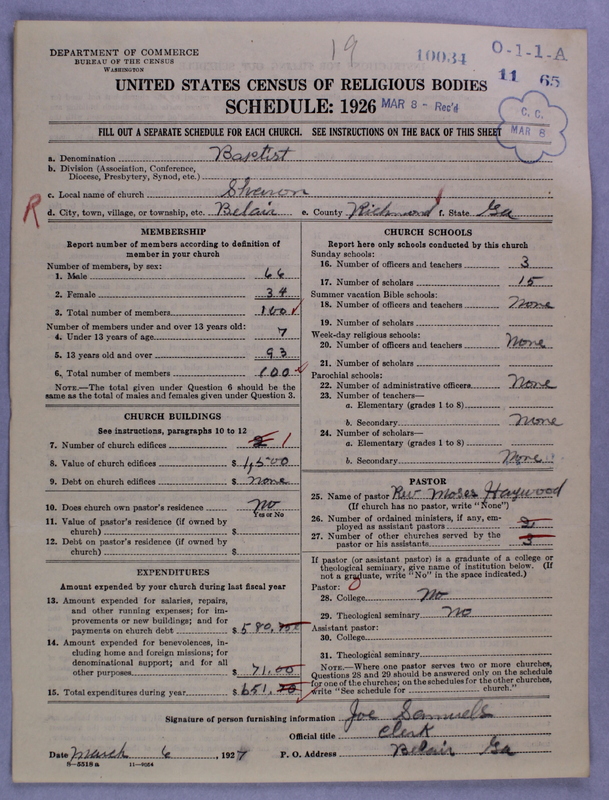 DEPARTMENT OF COMMERCE
BUREAU OF THE CENSUS
WASHINGTON
19
10034
O-1-1-A
11 65
UNITED STATES CENSUS OF RELIGIOUS BODIES
SCHEDULE: 1926
MAR 8 - Rec'd
C. C.
MAR 8
FILL OUT A SEPARATE SCHEDULE FOR EACH CHURCH. SEE INSTRUCTIONS ON THE BACK OF THIS SHEET
a. Denomination Baptist
b. Division (Association, Conference,
Diocese, Presbytery, Synod, etc.)
c. Local name of church Sharon
R d. City, town, village, or township, etc. Belair e. County Richmond f. State Ga
MEMBERSHIP
Report number of members according to definition of
member in your church
Number of members, by sex:
1. Male 66
2. Female 34
3. Total number of members 100
Number of members under and over 13 years old:
4. Under 13 years of age 7
5. 13 years old and over 93
6. Total number of members 100
NOTE.—The total given under Question 6 should be the
same as the total of males and females given under Question 3.
CHURCH BUILDINGS
See instructions, paragraphs 10 to 12
7. Number of church edifices 2 1
8. Value of church edifices $ 1,500
9. Debt on church edifices $ None
10. Does church own pastor's residence No
Yes or No
11. Value of pastor's residence (if owned by
church) $
12. Debt on pastor's residence (if owned by
church) $
EXPENDITURES
Amount expended by your church during last fiscal year
13. Amount expended for salaries, repairs,
and other running expenses; for im-
provements or new buildings; and for
payments on church debt $ 580.
14. Amount expended for benevolences, in-
cluding home and foreign missions; for
denominational support; and for all
other purposes $ 71.00
15. Total expenditures during year $ 651.
CHURCH SCHOOLS
Report here only schools conducted by this church
Sunday schools:
16. Number of officers and teachers 3
17. Number of scholars 15
Summer vacation Bible schools:
18. Number of officers and teachers None
19. Number of scholars
Week-day religious schools:
20. Number of officers and teachers None
21. Number of scholars
Parochial schools:
22. Number of administrative officers None
23. Number of teachers—
a. Elementary (grades 1 to 8)
b. Secondary None
24. Number of scholars—
a. Elementary (grades 1 to 8)
b. Secondary None
PASTOR
25. Name of pastor Rev Moses Haywood
(If church has no pastor, write "None")
26. Number of ordained ministers, if any, em-
ployed as assistant pastors 2
27. Number of other churches served by the
pastor or his assistants 3
If pastor (or assistant pastor) is a graduate of a college or
theological seminary, give name of institution below. (If
not a graduate, write "No" in the space indicated.)
Pastor: 0
28. College No
29. Theological seminary No
Assistant pastor:
30. College
31. Theological seminary
NOTE.—Where one pastor serves two or more churches,
Questions 28 and 29 should be answered only on the schedule
for one of the churches; on the schedules for the other churches,
write "See schedule for church."
Signature of person furnishing information Joe Samuels
Official title Clerk
Date March 6 1927 P. O. Address Belair Ga
8-5518a 11-9064